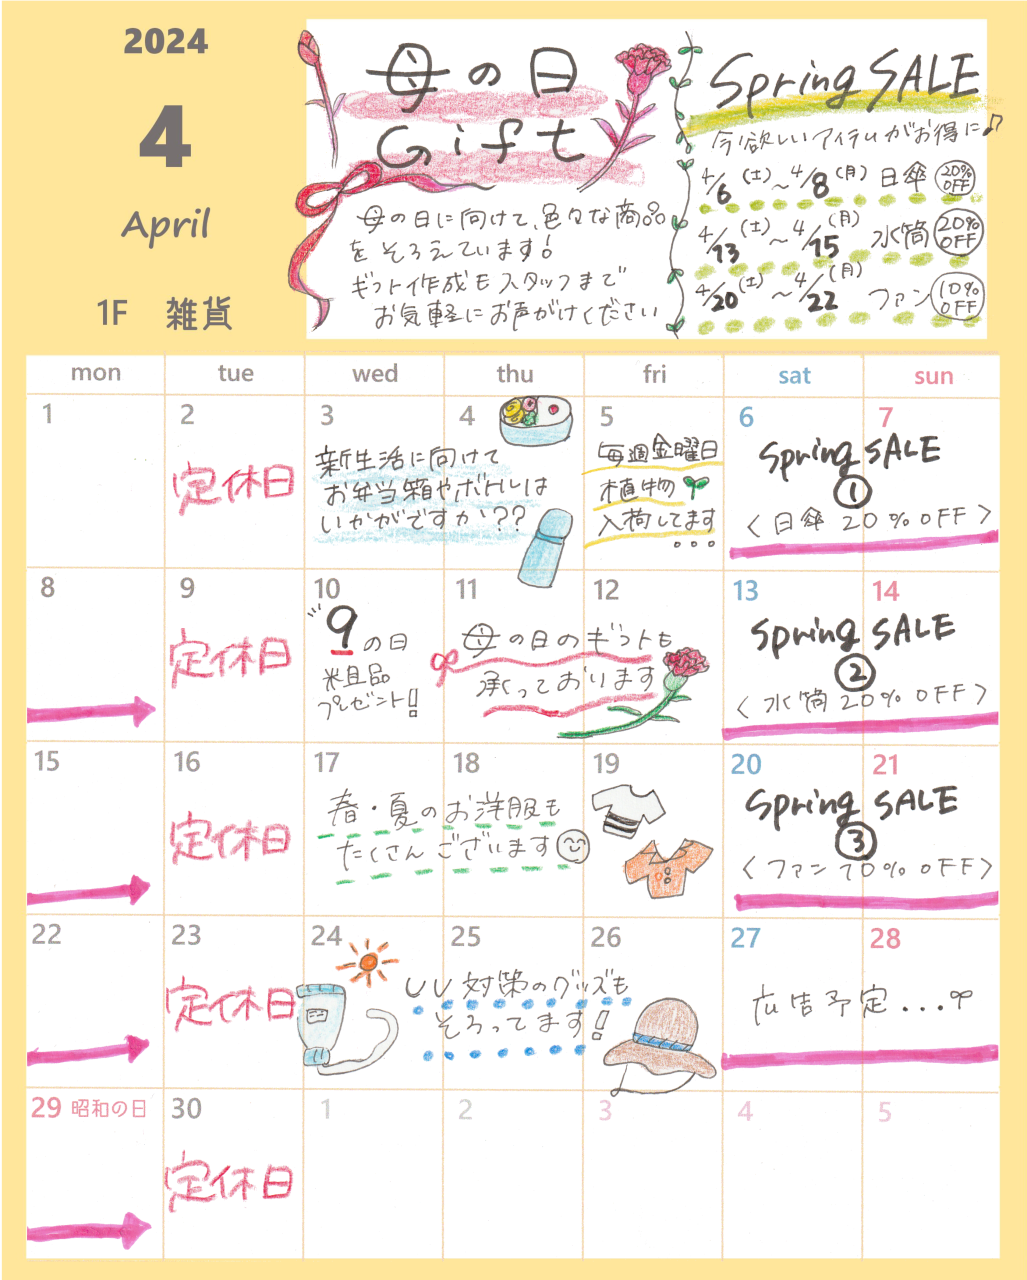 2024
4
April
1F 雑貨
母の日
Gift
母の日に向けて、色々な商品
をそろえています!
ギフト作成もスタッフまで
お気軽にお声がけください
Spring SALE
今欲しいアイテムがお得に♪
4/6(土)~4/8(月) 日傘 20% OFF
4/13(土)~4/15(月) 水筒 20% OFF
4/20(土)~4/22(月) ファン 10% OFF
mon tue wed thu fri sat sun
1 2 3 4 5 6 7
定休日
新生活に向けて
お弁当箱やボトルは
いかがですか??
毎週金曜日
植物
入荷してます
...
Spring SALE
①
〈日傘 20% OFF〉
8 9 10 11 12 13 14
定休日
9の日
米且品
プレゼント!!
母の日のギフトも
承っております
Spring SALE
②
〈水筒 20% OFF〉
15 16 17 18 19 20 21
定休日
春・夏のお洋服も
たくさんございます
Spring SALE
③
〈ファン 10% OFF〉
22 23 24 25 26 27 28
定休日
UV対策のグッズも
そろってます!
広告予定...
29 昭和の日 30 1 2 3 4 5
定休日